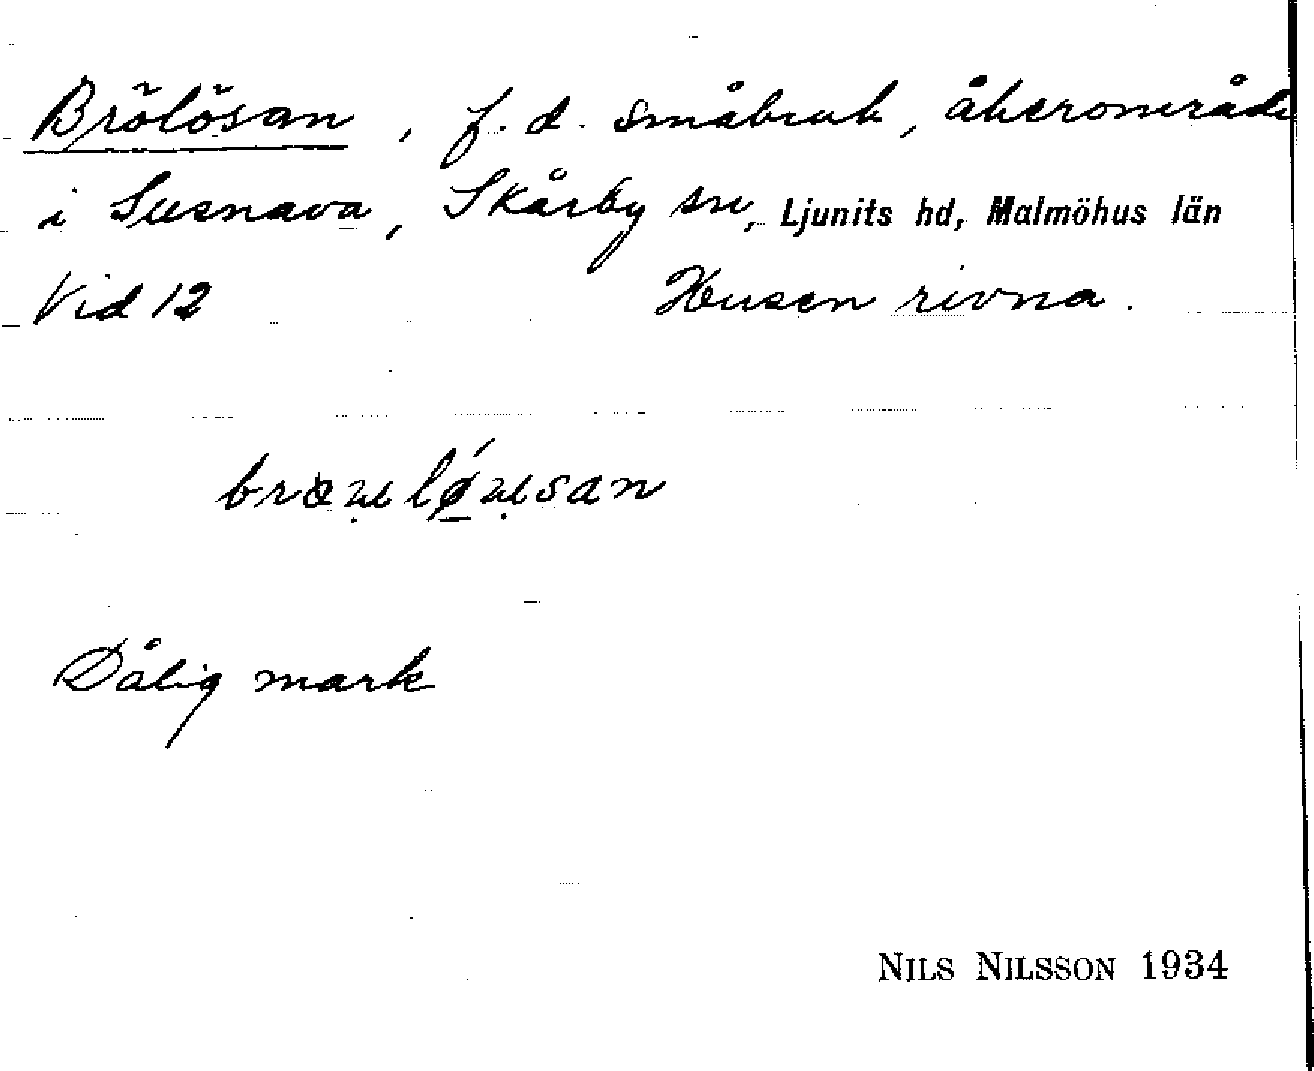 Brölösan, f. d. småbruk, åkerområde
i Susnava, Skårby sn, Ljunits hd, Malmöhus län
Vid 12 Husen rivna.
Dålig mark
NILS NILSSON 1934